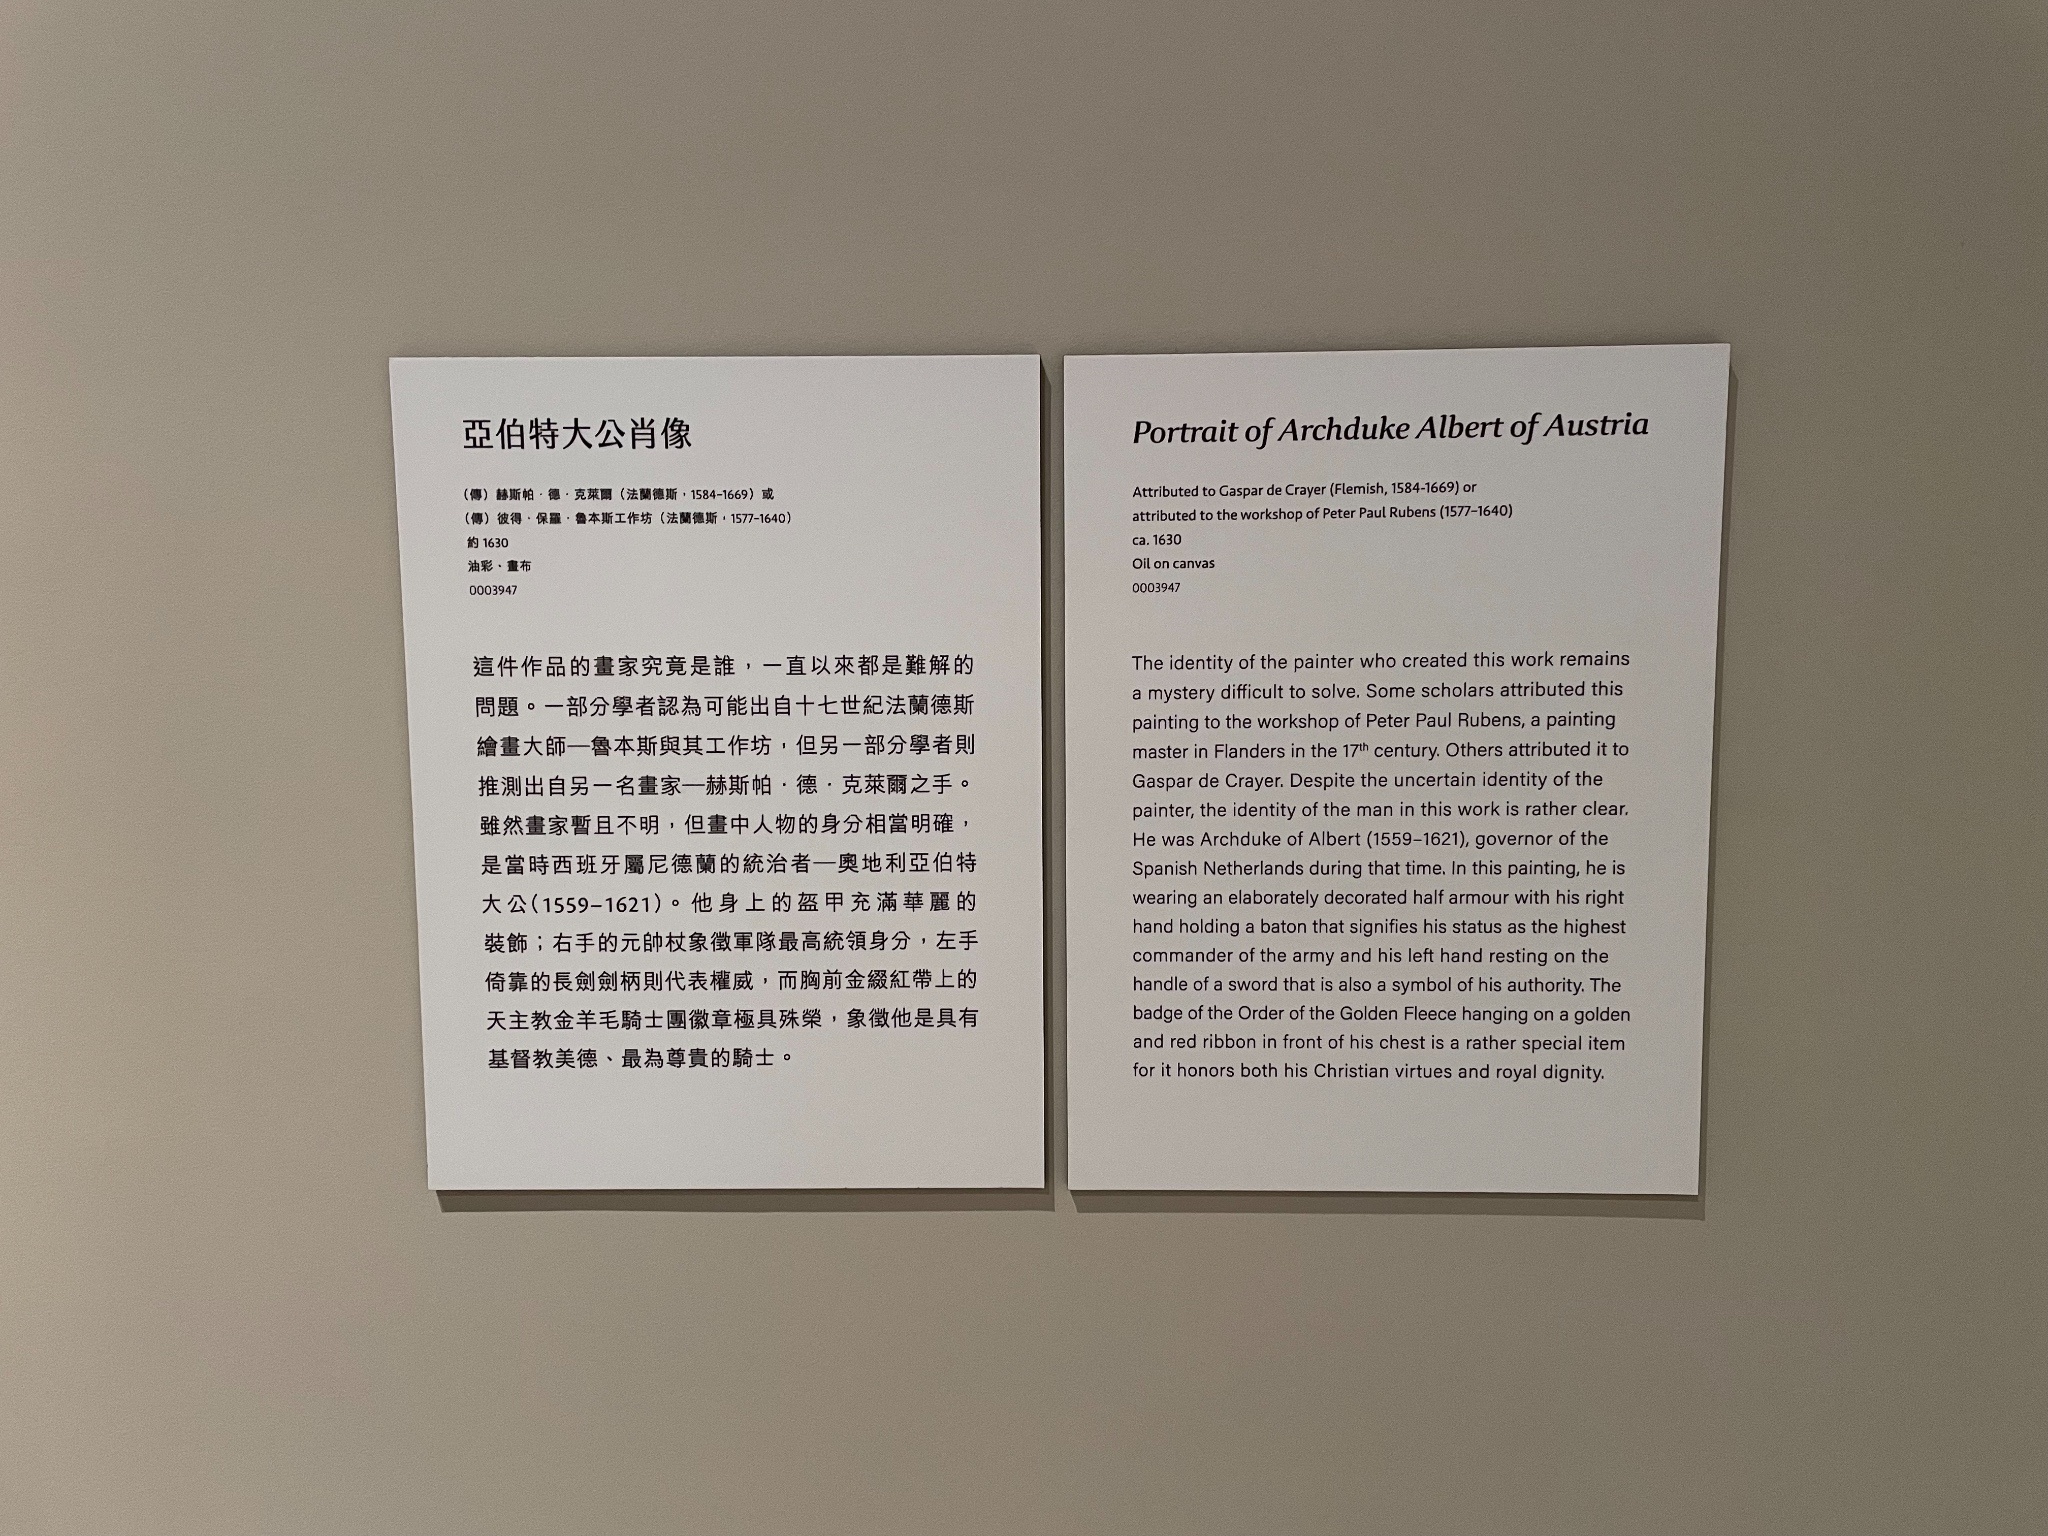 亞伯特大公肖像
（傳）赫斯帕・德・克萊爾（法蘭德斯，1584-1669）或
（傳）彼得・保羅・魯本斯工作坊（法蘭德斯，1577-1640）
約 1630
油彩、畫布
0003947
這件作品的畫家究竟是誰，一直以來都是難解的
問題。一部分學者認為可能出自十七世紀法蘭德斯
繪畫大師—魯本斯與其工作坊，但另一部分學者則
推測出自另一名畫家—赫斯帕・德・克萊爾之手。
雖然畫家暫且不明，但畫中人物的身分相當明確，
是當時西班牙屬尼德蘭的統治者—奧地利亞伯特
大公(1559–1621)。他身上的盔甲充滿華麗的
裝飾；右手的元帥杖象徵軍隊最高統領身分，左手
倚靠的長劍劍柄則代表權威，而胸前金綴紅帶上的
天主教金羊毛騎士團徽章極具殊榮，象徵他是具有
基督教美德、最為尊貴的騎士。
Portrait of Archduke Albert of Austria
Attributed to Gaspar de Crayer (Flemish, 1584-1669) or
attributed to the workshop of Peter Paul Rubens (1577-1640)
ca. 1630
Oil on canvas
0003947
The identity of the painter who created this work remains
a mystery difficult to solve. Some scholars attributed this
painting to the workshop of Peter Paul Rubens, a painting
master in Flanders in the 17th century. Others attributed it to
Gaspar de Crayer. Despite the uncertain identity of the
painter, the identity of the man in this work is rather clear.
He was Archduke of Albert (1559–1621), governor of the
Spanish Netherlands during that time. In this painting, he is
wearing an elaborately decorated half armour with his right
hand holding a baton that signifies his status as the highest
commander of the army and his left hand resting on the
handle of a sword that is also a symbol of his authority. The
badge of the Order of the Golden Fleece hanging on a golden
and red ribbon in front of his chest is a rather special item
for it honors both his Christian virtues and royal dignity.